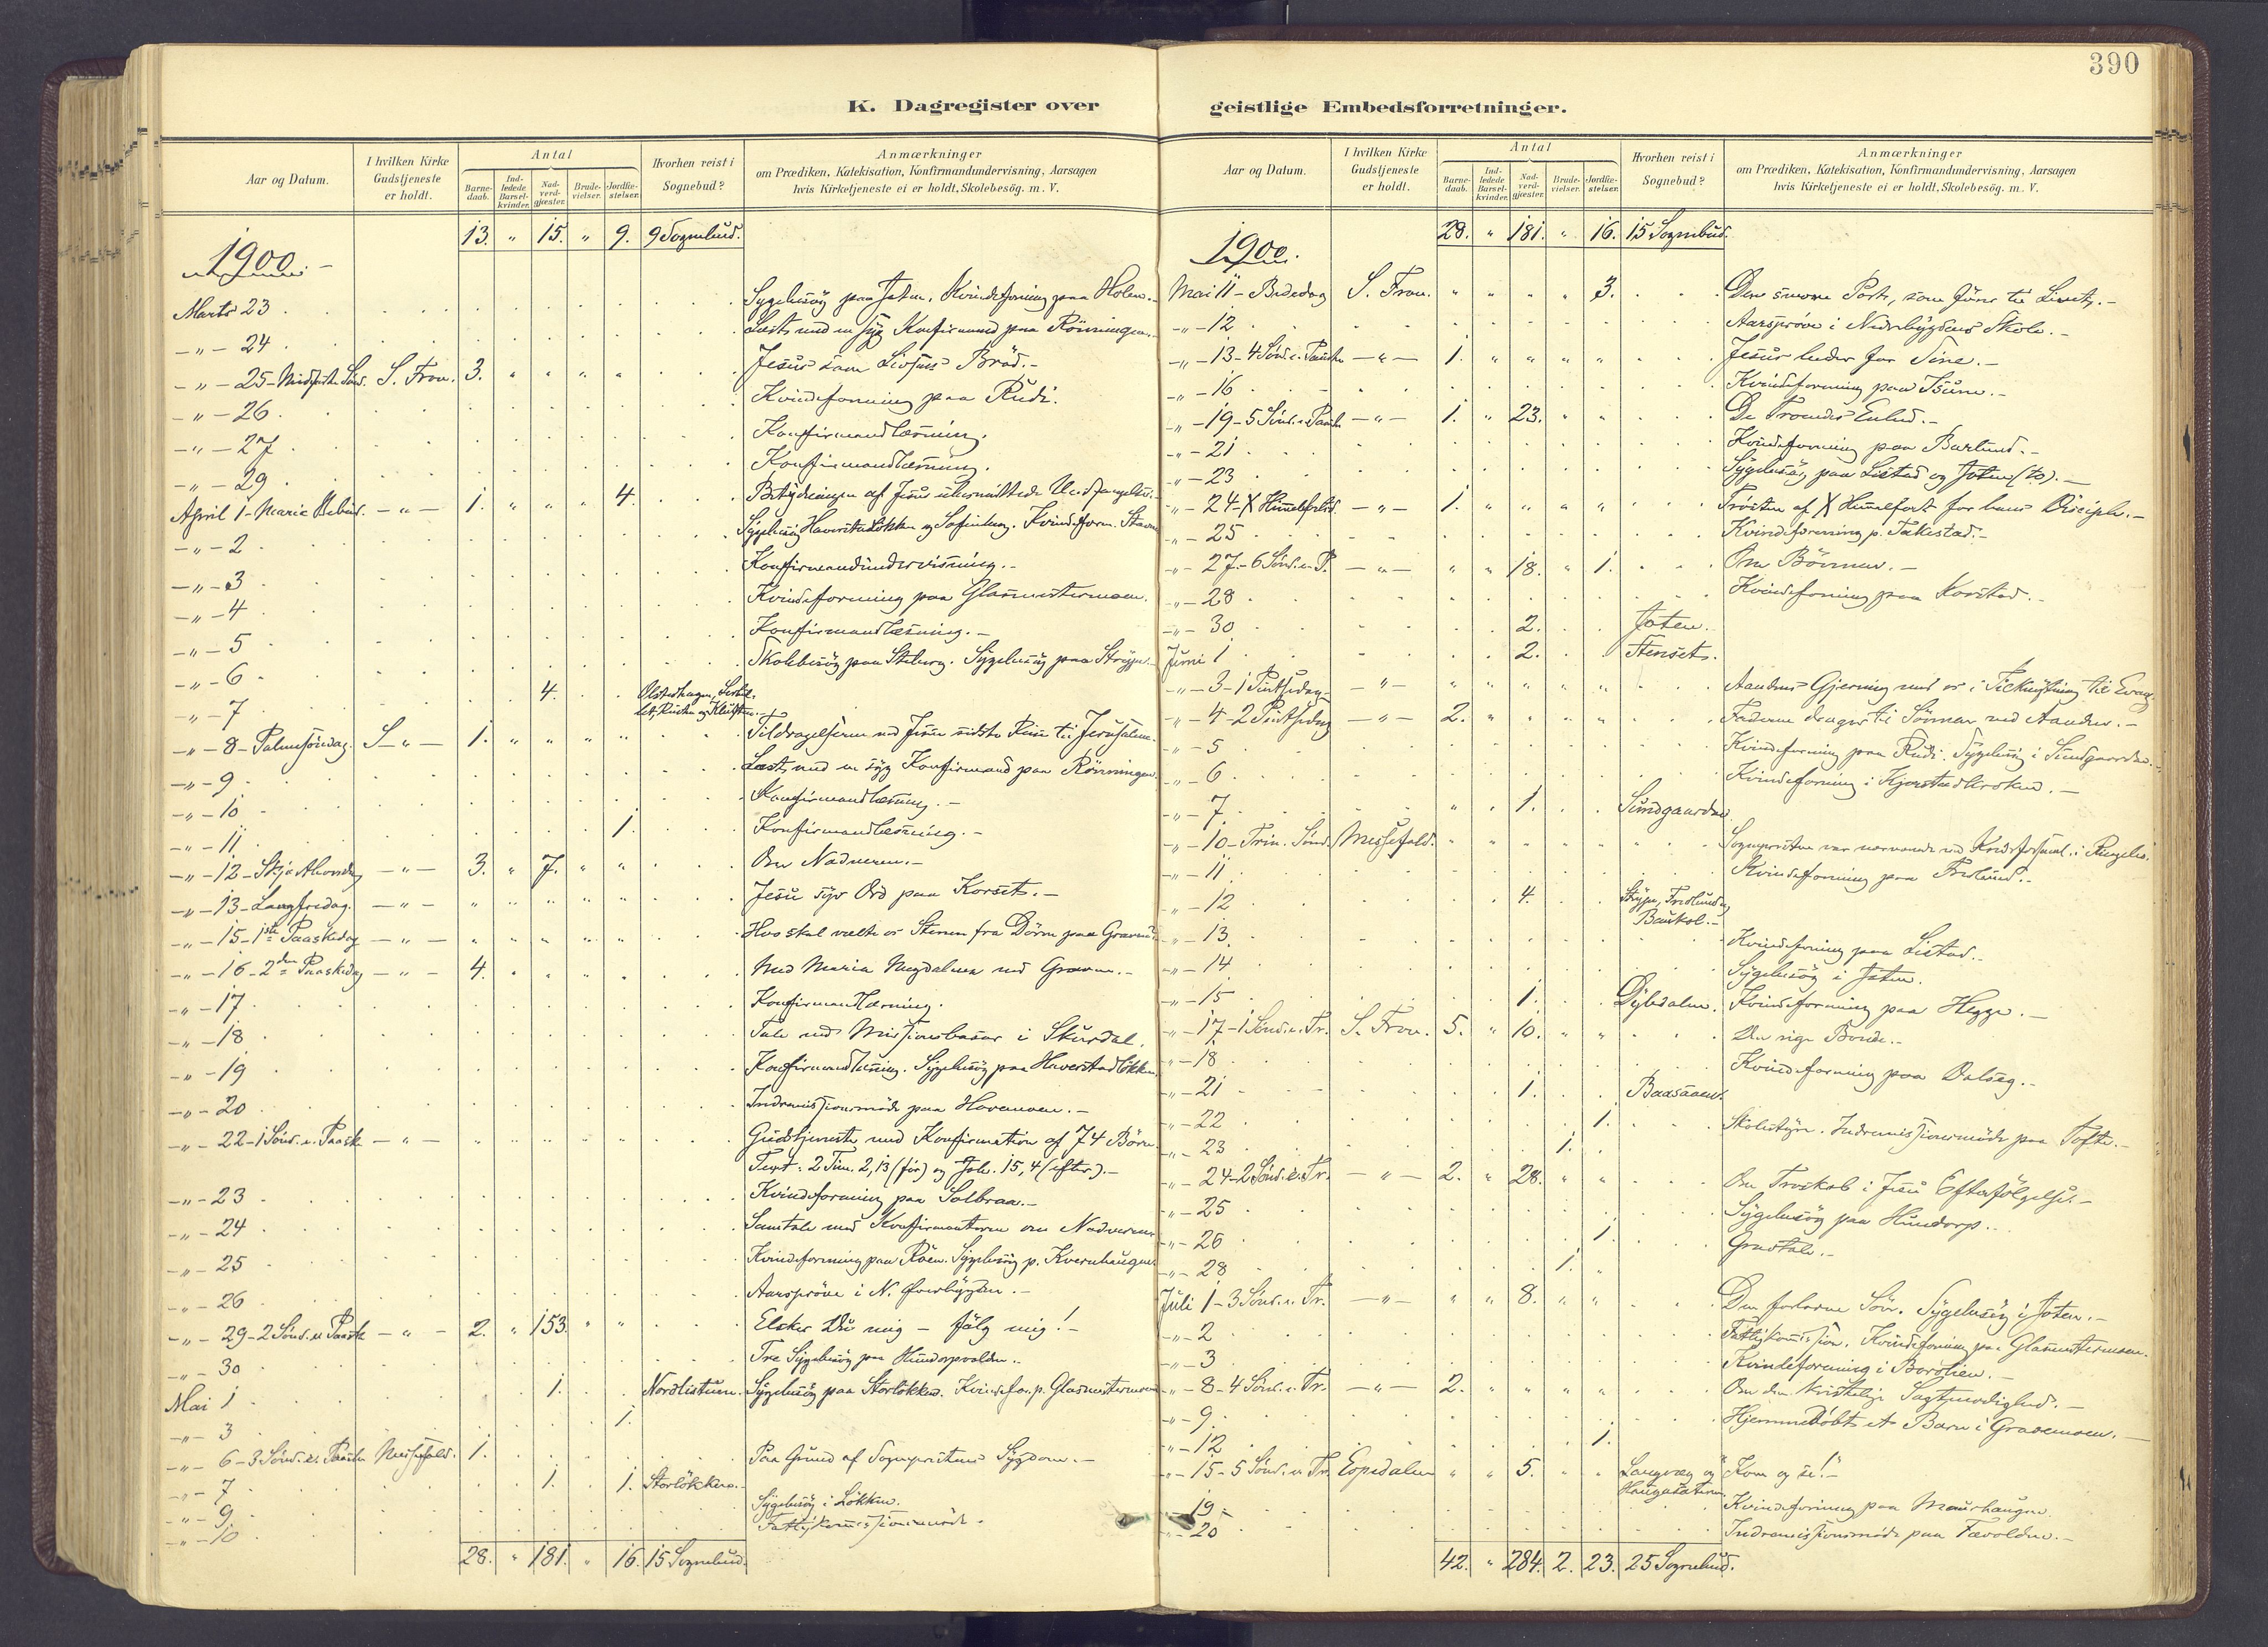 390
K. Dagregister over geistlige Embedsforretninger.
Aar og Datum.
I hvilken Kirke Gudstjeneste er holdt.
Antal
Barnedaab.
Indledede Barselkvinder.
Nadverdgjæster.
Brudevielser.
Jordfæstelser.
Hvorhen reist i Sognebud?
Anmærkninger
om Prædiken, Katekisation, Konfirmandundervisning, Aarsagen
hvis Kirketjeneste ei er holdt, Skolebesög. m. V.
13. " 15. " 9. 9 Sognebud.
1900.
Marts 23 Sygebesög paa Joten. Kvindeforening paa Holen.
-"- 24 Læst med en syg Konfirmand paa Rönningen.
-"- 25 - Midfaste Sönd. S. Fron. 3. " " " " Jesus som Livsens Bröd.-
-"- 26. Kvindeforening paa Rudi.
-"- 27 Konfirmandlæsning.
-"- 29 Konfirmandlæsning.
April 1 - Mariæ Bebud. -"- 1. " " " 4. Betydningen af Jesu Undfangelse.
-"- 2 Sygebesög Haverstadlökken og Kvindeforen.
-"- 3 Konfirmandundervisning.-
-"- 4 Kvindeforening paa Glasmestermoen.
-"- 5 Konfirmandlæsning.-
-"- 6 Skolebesög paa Steberg. Sygebesög paa Strype.
-"- 7 4. Olstadhagen,
-"- 8 - Palmesöndag. S -"- 1. " " " " Tildragelserne ved Jesu sidste Reise til Jerusalem.
-"- 9 Læst med en syg Konfirmand paa Rönningen.
-"- 10 Konfirmandlæsning.-
-"- 11 1. Konfirmandlæsning.-
-"- 12 - Skjærthorsdag -"- 3. " 7. " " Om Nadveren.-
-"- 13 - Langfredag. -"- " " " " " Jesu syv Ord paa Korset.-
-"- 15 - 1ste Paaskedag -"- " " " " " Hvo skal vælte os Stenen fra Dören paa Graven?
-"- 16 - 2den Paaskedag -"- 4. " " " " Med Maria Magdalena ved Graven.-
-"- 17 Konfirmandlæsning.
-"- 18 Tale ved Missionsbasar i Skurdal.
-"- 19 Konfirmandlæsning. Sygebesög paa Haverstadlökken.
-"- 20 Indremissionsmöde paa Hovemoen.-
-"- 22 - 1 Sönd. e. Paask -"- " " " " " Gudstjeneste med Konfirmation af 74 Börn
Text: 2 Tim. 2,13 (för) og Joh. 15,4 (efter).-
-"- 23 Kvindeforening paa Solbraa.-
-"- 24 Samtale med Konfirmanterne om Nadveren
-"- 25 Kvindeforening paa Röen. Sygebesög p. Kvernhaugen
-"- 26 Aarspröve i N. Överbygden.-
-"- 29 - 2 Sönd. e. Paask -"- 2. " 153. " " Elsker Du mig - fölg mig!-
-"- 30 Tre Sygebesög paa Hundorpvolden.
Mai 1 1. Nordlistuen. Sygebesög paa Storlökken. Kvindefor. p. Glasmestermoen
-"- 3 1.
-"- 6 - 3 Sönd. e. Paaske Messefald. 1. Paa Grund af Sognepræstens Sygdom.-
-"- 7 1. 1. Storlökken.-
-"- 9. Sygebesög i Lökken.
-"- 10 Fattigkommissionsmöde.
28. " 181. " 16. 15 Sognebud.
Aar og Datum.
I hvilken Kirke Gudstjeneste er holdt.
Antal
Barnedaab.
Indledede Barselkvinder.
Nadverdgjæster.
Brudevielser.
Jordfæstelser.
Hvorhen reist i Sognebud?
Anmærkninger
om Prædiken, Katekisation, Konfirmandundervisning, Aarsagen
hvis Kirketjeneste ei er holdt, Skolebesög. m. V.
28. " 181. " 16. 15 Sognebud.
1900.
Mai 11 - Bededag S. Fron. " " " " 3. Den snevre Port, som förer til Livet.-
-"- 12 Aarspröve i Nedrebygdens Skole.-
-"- 13 - 4 Sönd. e. Paaske -"- 1. " " " " Jesus beder for Sine.-
-"- 16 Kvindeforening paa Isum.-
-"- 19 - 5 Sönd. e. Paask -"- 1. " 23. " " De Troendes Enhed.-
-"- 21 Kvindeforening paa Barlund.-
-"- 23 Sygebesög paa Listad og Joten (to).-
-"- 24 - X Himmelfartsd. -"- 1. " " " " Trösten af X Himmelfart for hans Disciple.-
-"- 25 Kvindeforening p. Takestad.-
-"- 27 - 6 Sönd. e. P. -"- " " 18. " 1. Om Bönnen.-
-"- 28 Kvindeforening paa Korstad.-
-"- 30 2. Joten.
Juni 1 2. Stenset.
-"- 3 - 1 Pintsedag -"- " " " " " Aandens Gjerning med os i Tilknytning til Evang.
-"- 4 - 2 Pintsedag -"- 2. " " " " Faderen drager til Sönnen ved Aanden.-
-"- 5 Kvindeforening paa Rudi. Sygebesög i Sundgaarden.
-"- 6 Kvindeforening i Kjorstadkroken.-
-"- 7 " " 1. Sundgaarden
-"- 10 - Trin. Sönd. Messefald. " " " " " Sognepræsten var nærværende ved i Ringebu.
-"- 11 Kvindeforening paa Fredlund.-
-"- 12 4. Strype, Fredlund og
-"- 13. Kvindeforening paa Listad.-
-"- 14 Sygebesög i Joten.
-"- 15 1. Dybdalen. Kvindeforening paa Hegge.-
-"- 17 - 1 Sönd. e. Tr. S. Fron. 5. " 10. " " Den rige Bonde.-
-"- 18 Kvindeforening paa Dalseg.-
-"- 21 1. Baasaaen.
-"- 22 1. Skolestyre. Indremissionsmöde paa Tofte.-
-"- 23 1.
-"- 24 - 2 Sönd. e. Tr. -"- 2. " 28. " " Om Troskab i Jesu Efterfölgelse.-
-"- 25 Sygebesög paa Hundorp.-
-"- 26 1. Gravtale.-
-"- 28 1.
Juli 1 - 3 Sönd. e. Tr. -"- " " 8. " " Den forlorne Sön. Sygebesög i Joten.-
-"- 2 Fattigkommission. Kvindeforening paa Glasmestermoen.
-"- 3 Kvindeforening i Borolien.-
-"- 8 - 4 Sönd. e. Tr. -"- 2. " " " " Om den kristelige Sagtmodighed.-
-"- 9. Hjemmedöbt et Barn i Gravemoen.-
-"- 12 1.
-"- 15 - 5 Sönd. e. Tr. Espedalen " " 5. " " Langvæg og "Kom og se!"-
-"- 19 Kvindeforening paa Maurhaugen
-"- 20 Indremissionsmöde paa Tævolden.-
42. " 284. 2. 23. 25 Sognebud.